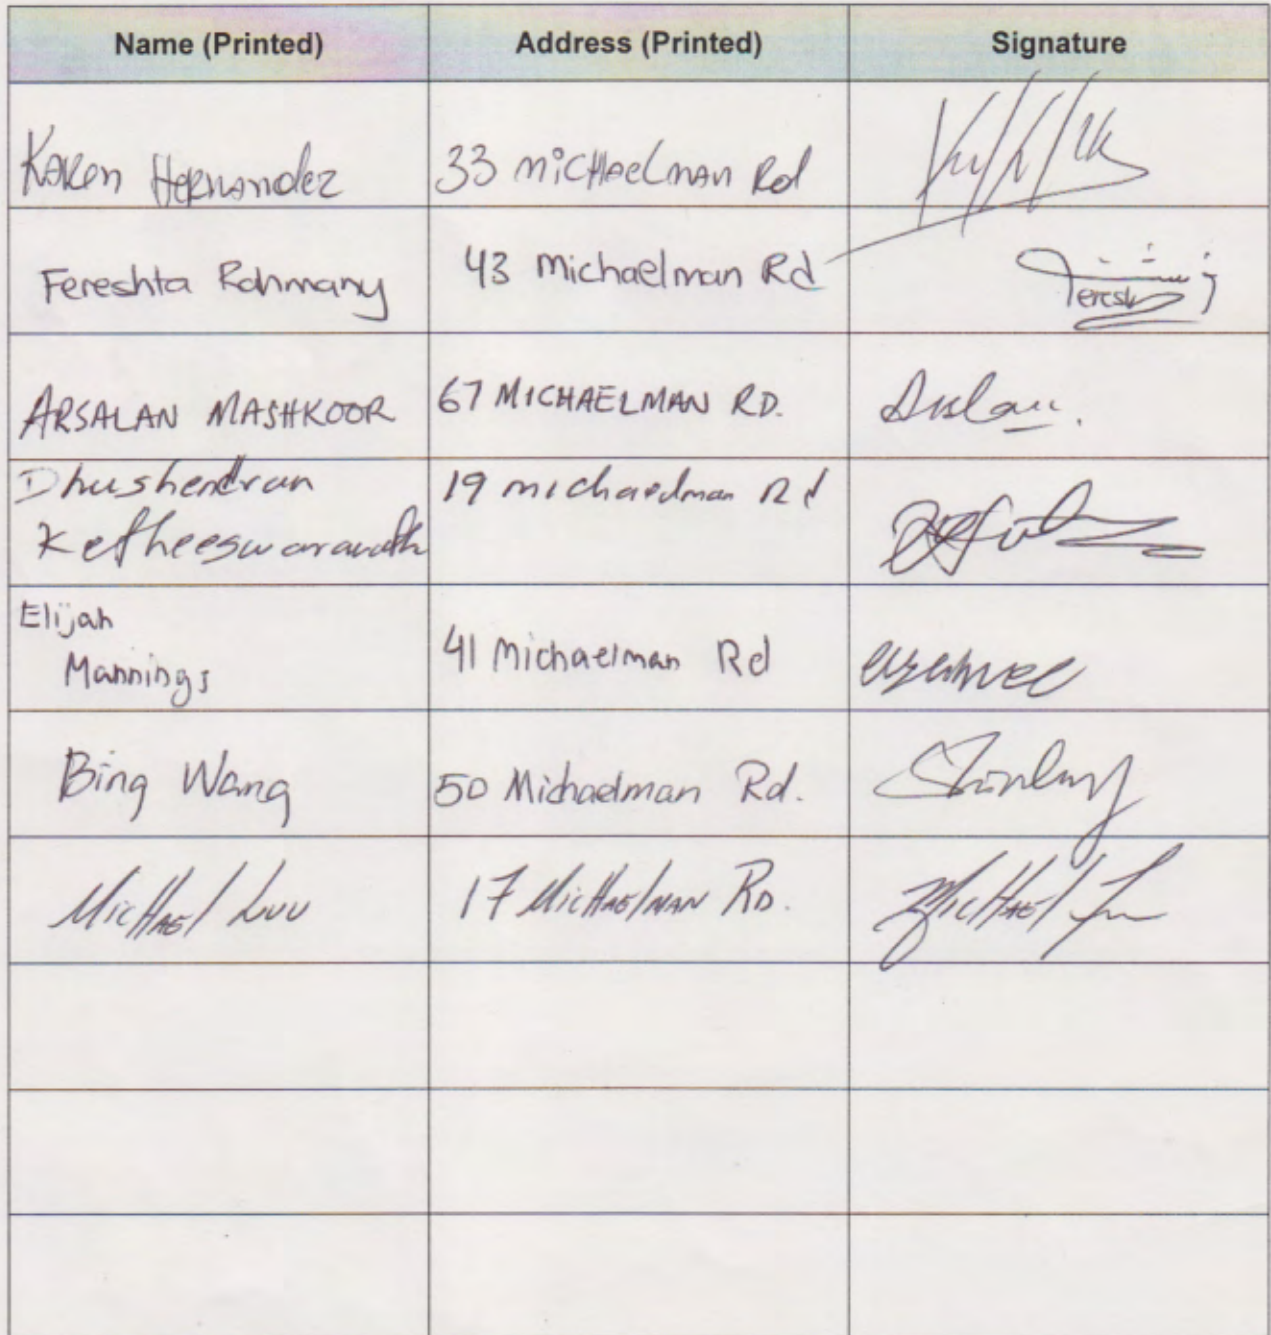 Name (Printed) Address (Printed) Signature
Karen Hernandez 33 Michaelman Rd
Fereshta Rahmany 43 Michaelman Rd
ARSALAN MASHKOOR 67 MICHAELMAN RD. Arslan.
Dhushendran 19 michaelman Rd
Ketheeswaranath
Elijah
Mannings 41 Michaelman Rd
Bing Wang 50 Michaelman Rd.
Michael Luu 17 Michaelman RD. Michael Lu